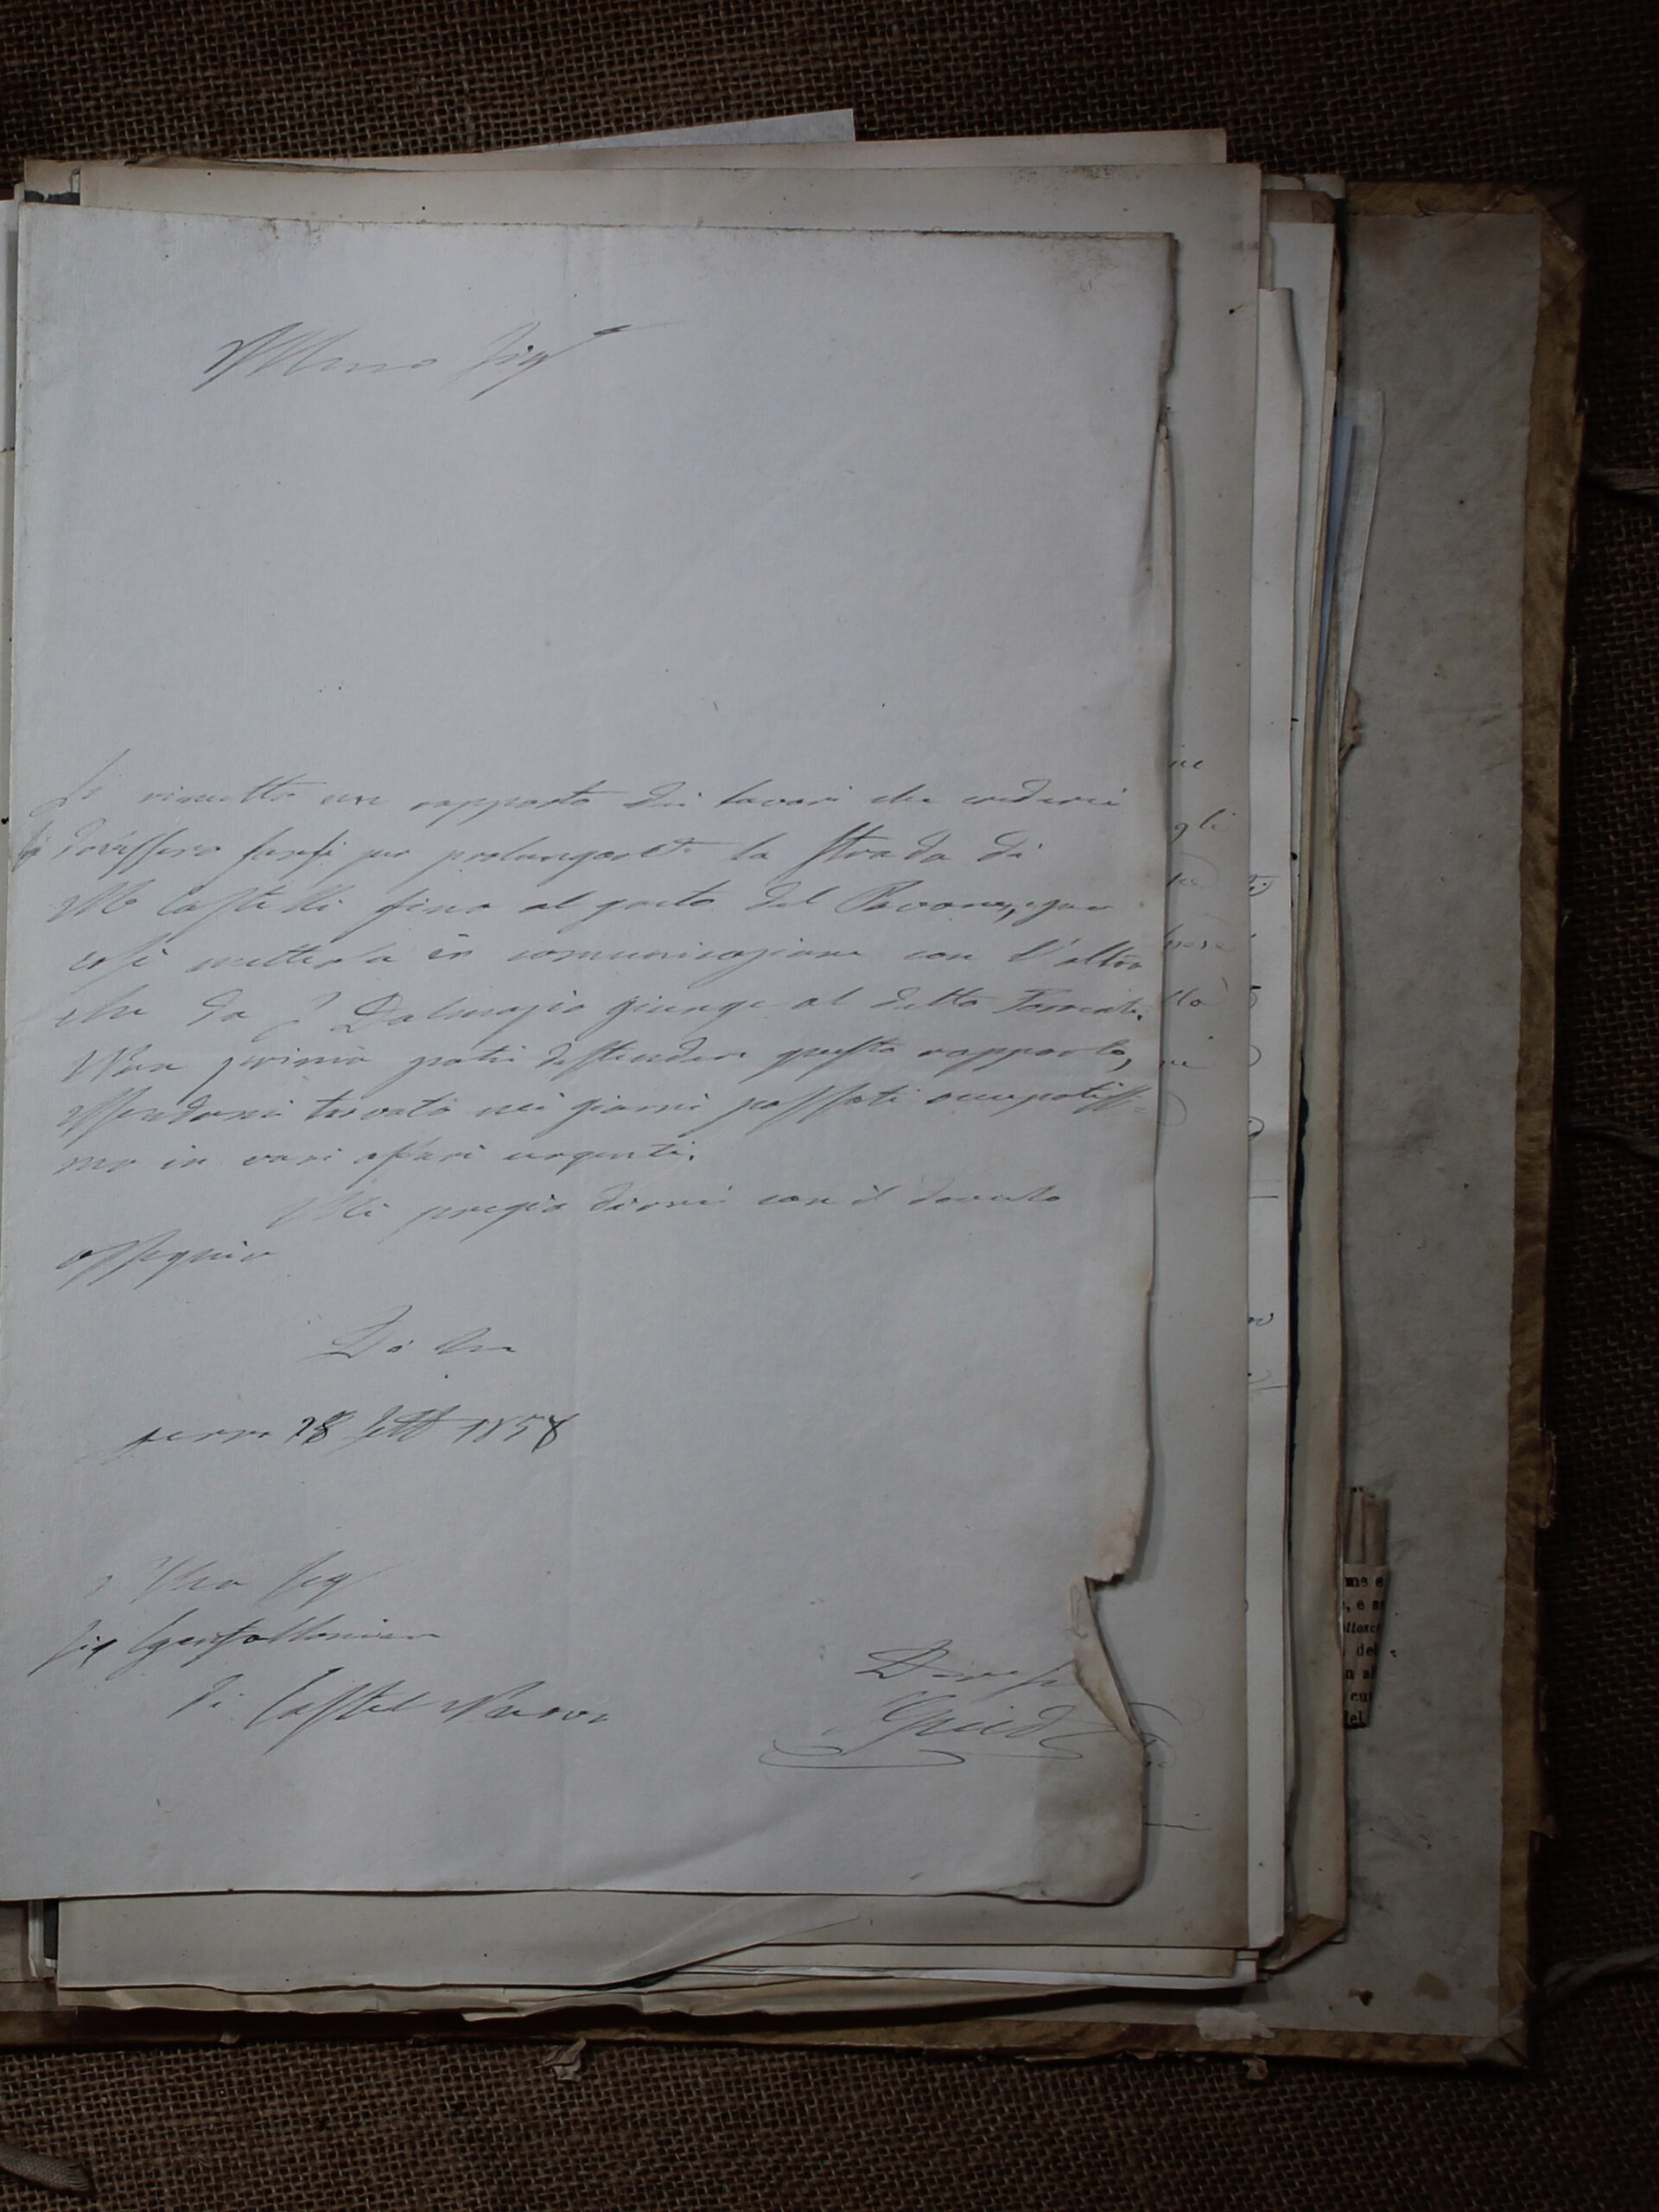 Illmo Sig
Le rimetto un rapporto dei lavori che crederei
si dovessero farsi per prolungare la strada di
M Castelli fino al greto del Pavone, e per
così metterla in comunicazione con l'altra
che da S Dalmazio giunge al detto Torrente.
Non prima potei distendere questo rapporto,
essendomi trovato nei giorni passati occupatissi=
mo in vari affari urgenti.
Mi pregio dirmi con il dovuto
ossequio
Di
28 Sett 1858
Sig
Sig Gonfaloniere
di Castel Nuovo
Guid
ne
gli